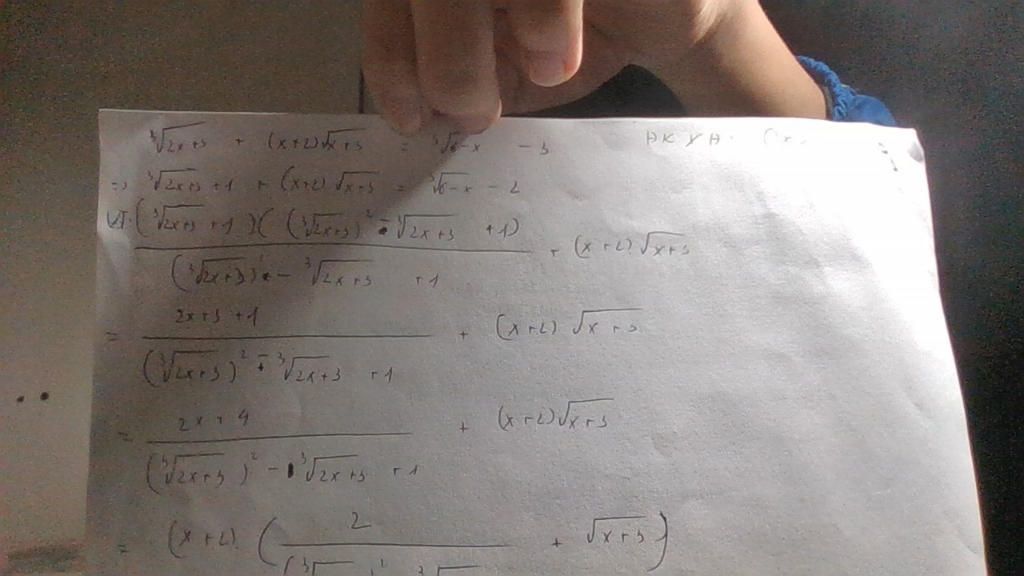 ∛(2x+3) + (x+2)√(x+3) = ∛(6-x) - 3
=> ∛(2x+3) + 1 + (x+2)√(x+3) = ∛(6-x) - 2
VT: (∛(2x+3) + 1)((∛(2x+3))² - ∛(2x+3) + 1) / ((∛(2x+3))² - ∛(2x+3) + 1) + (x+2)√(x+3)
= (2x+3+1) / ((∛(2x+3))² - ∛(2x+3) + 1) + (x+2)√(x+3)
= (2x+4) / ((∛(2x+3))² - ∛(2x+3) + 1) + (x+2)√(x+3)
= (x+2)(2 / ((∛ )² ∛ + √(x+3))